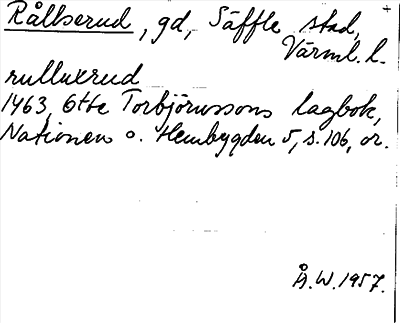 Rållserud, gd, Säffle stad,
Värml. l.
rulluxrud
1463, Otte Torbjörnssons lagbok,
Nationen o. Hembygden 5, s. 106, or.
Å.W. 1957.